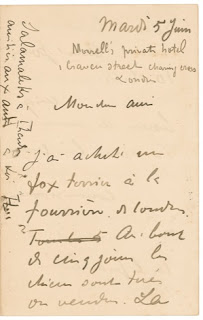 Mardi 5 Juin
Morrell's private hotel
1 Craven street charing cross
London
Mon cher ami
j'ai acheté un
fox terrier à la
fourrière de Londres
Au bout
de cinq jours les
chiens sont tués
ou vendus. La
Salamalek à Thadée
amitiés aux
à toi